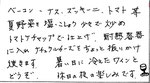 ベーコン・ナス・ズッキーニ、トマト等
夏野菜を塩・こしょうをして炒め
トマトケチャップで仕上げ、耐熱容器
に入れナチュラルチーズをちょい振りかけ
焼きます 暑い日に冷たいワインと
どうぞ 休日の夜の楽しみです